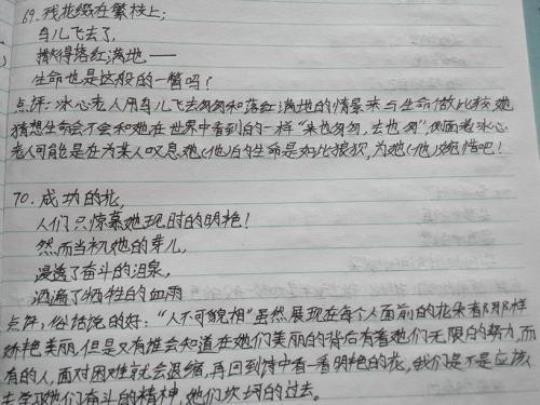 69. 残花缀在繁枝上;
鸟儿飞去了,
撒得落红满地——
生命也是这般的一瞥吗?
点评:冰心老人用鸟儿飞去匆匆和落红满地的情景来与生命做比较她
猜想生命会不会和她在世界中看到的一样“来也匆匆,去也匆”,侧面看冰心
老人可能是在为某人叹息她(他)的生命是如此狼狈,为她(他)惋惜吧!
70. 成功的花,
人们只惊慕她现时的明艳!
然而当初她的芽儿,
浸透了奋斗的泪泉,
洒遍了牺牲的血雨
点评:俗话说的好:“人不可貌相”虽然展现在每个人面前的花朵都那样
娇艳美丽,但是又有谁会知道在她们美丽的背后有着她们无限的努力,而
有的人,面对困难就会退缩,再回到诗中看一看明艳的花,我们是不是应该
去学习她们奋斗的精神,她们坎坷的过去。